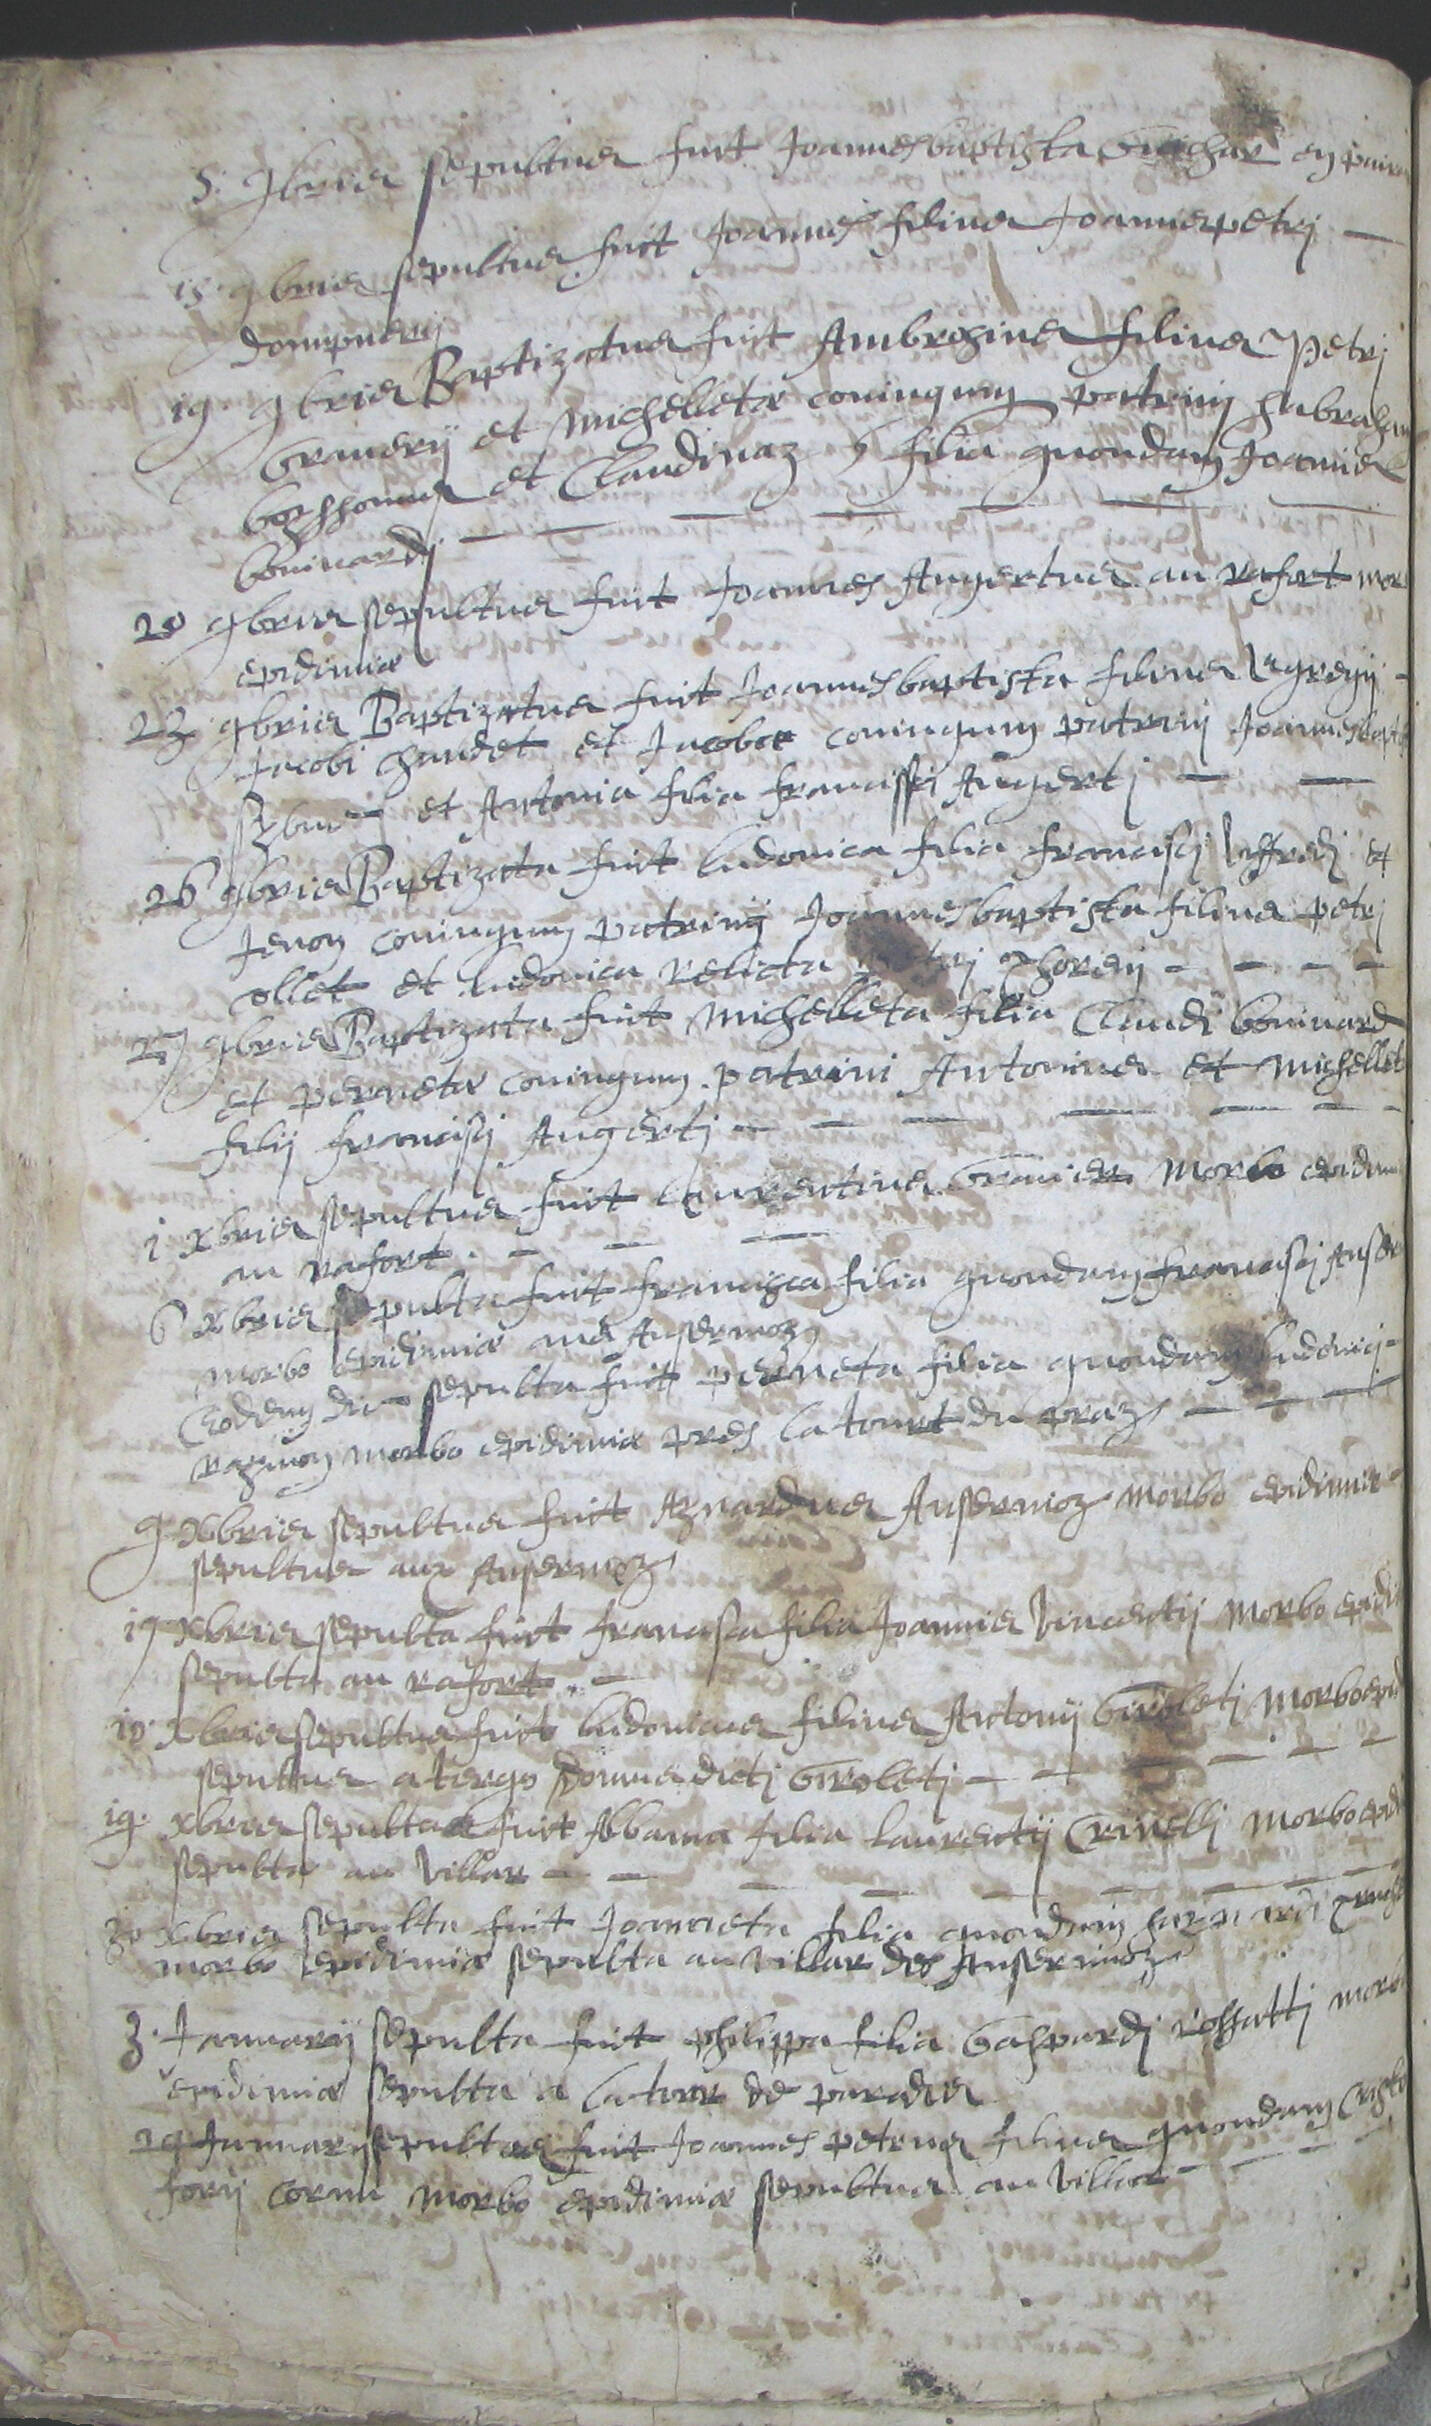 5. 9bris sepultus fuit Joannesbaptista Guichar
15. 9bris sepultus fuit Joannes filius Joannispetri
dompnerij
19 9bris Baptizatus fuit Ambrosius filius Petri
Gravierij et Michelletæ coniugum patrinj
et Claudinaz filia quondam Joannis
bonivardj
20 9bris sepultus fuit Joannes Angertus au rafort mor
epidimiæ
23 9bris Baptizatus fuit Joannesbaptista filius Egregij
Jacobi chaudet et Jacobæ coniugum patrinj Joannesbapt
et Antonia filia francisci Angertj
26 9bris Baptizata fuit ludovica filia francisci et
Jenon coniugum patrinij Joannesbaptista filius petri
ollet et ludovica relicta
27 9bris Baptizata fuit Michelleta filia Claudi bonivard
et pernetæ coniugum. patrini Antonius et Michellet
filij francisci Angertj
1 xbris sepultus fuit laurentius Gravier Morbo epidim
au rafort.
6 xbris sepulta fuit francisca filia quondam francisci Anser
morbo epidimiæ aux Ansermoz
Eodem die sepulta fuit perneta filia quondam ludovici
morbo epidimiæ pres la tourt du praz
9 xbris sepultus fuit Aymardus Ansermoz morbo epidimiæ
sepultus aux Ansermoz
17 xbris sepulta fuit francisca filia Joannis Vincentij morbo epidi
sepulta au rafort.
18. xbris sepultus fuit ludovicus filius Antonij Giroletj morbo epid
sepultus a tergo domus dicti Giroletj
19. xbris sepulta fuit filia laurentij Crivellj Morbo epid
sepulta au Villar
20 xbris sepulta fuit Joanneta filia quondam
morbo epidimiæ sepulta au Villar des Ansermoz
3. Januarij sepulta fuit philippa filia Gaspardj rossattj morb
epidimiæ sepulta a la tour de paradis
Januarij sepultus fuit Joannes petrus filius quondam Cristo
forij cornu morbo epidimiæ sepultus au Villar